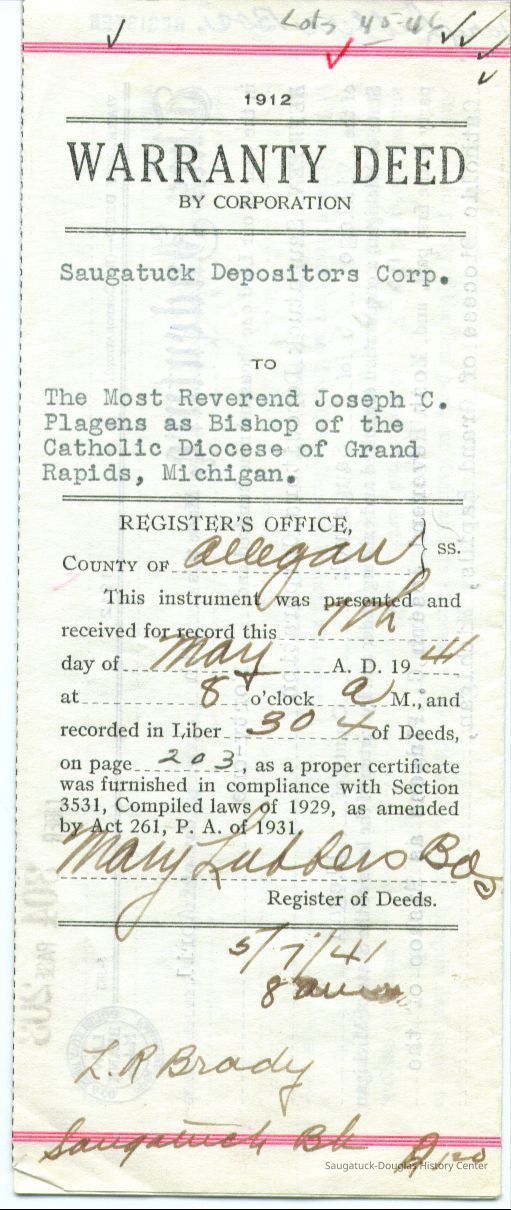 Lots 45-46
1912
WARRANTY DEED
BY CORPORATION
Saugatuck Depositors Corp.
TO
The Most Reverend Joseph C.
Plagens as Bishop of the
Catholic Diocese of Grand
Rapids, Michigan.
REGISTER'S OFFICE,
COUNTY OF Allegan } ss.
This instrument was presented and
received for record this 7th
day of May A. D. 19 41
at 8 o'clock A M., and
recorded in Liber 304 of Deeds,
on page 203, as a proper certificate
was furnished in compliance with Section
3531, Compiled laws of 1929, as amended
by Act 261, P. A. of 1931.
Mary Lubbers
Register of Deeds.
5/7/41
8 am
L. R Brady
Saugatuck Bk
Saugatuck-Douglas History Center